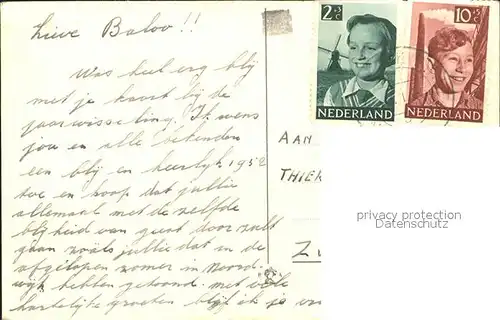 Lieve Baloo!!
Was heel erg blij
met je kaart bij de
jaarwisseling. Ik wens
jou en alle bekenden
een blij en heerlijk 1952
toe en hoop dat jullie
allemaal met de zelfde
blijheid van geest door zult
gaan zoals jullie dat in de
afgelopen zomer in Noord-
wijk hebben getoond. Met vele
hartelijke groeten blijf ik je
2+3c
NEDERLAND
10+5c
NEDERLAND
AAN
THIER
Z
privacy protection
Datenschutz